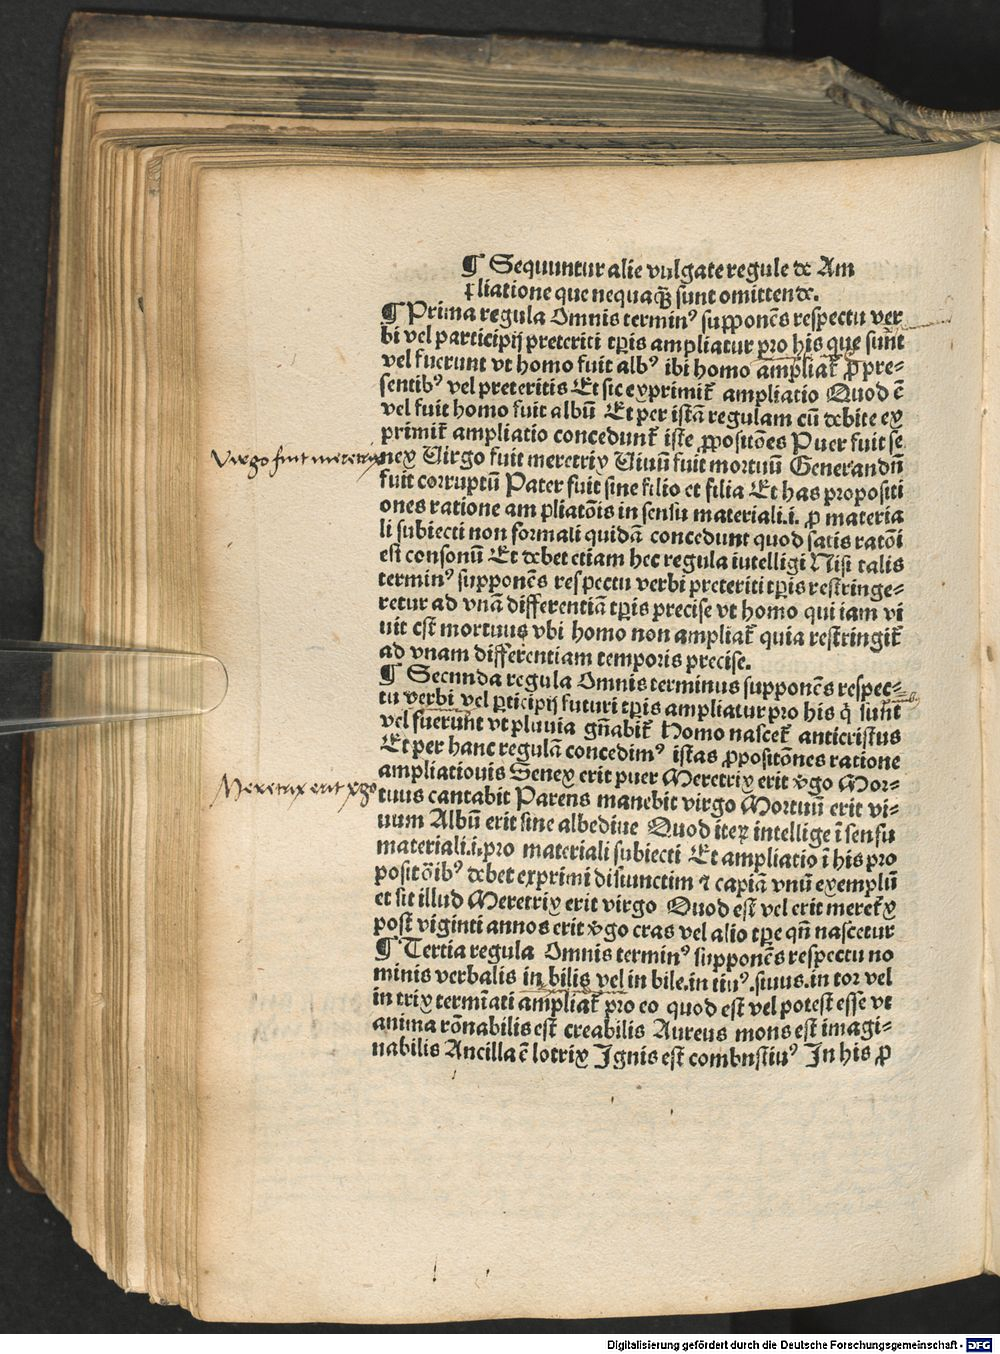 ¶ Sequuntur alie vulgate regule de Am
pliatione que nequaqȝ sunt omittende.
¶ Prima regula Omnis terminꝰ supponēs respectu ver
bi vel participij preteriti tꝑis ampliatur pro his que sunt
vel fuerunt vt homo fuit albꝰ ibi homo ampliať ꝓ pre⸗
sentibꝰ vel preteritis Et sic exprimiť ampliatio Quod ē
vel fuit homo fuit albū Et per istā regulam cū debite ex
primiť ampliatio concedunť iste ꝓpositōes Puer fuit se
nex Virgo fuit meretrix Viuū fuit mortuū Generandū
fuit corruptū Pater fuit sine filio et filia Et has propositi
ones ratione am pliatōis in sensu materiali.i. ꝓ materia
li subiecti non formali quidā concedunt quod satis ratōi
est consonū Et debet etiam hec regula iutelligi Nisi talis
terminꝰ supponēs respectu verbi preteriti tꝑis restringe⸗
retur ad vnā differentiā tꝑis precise vt homo qui iam vi
uit est mortuus vbi homo non ampliať quia restringiť
ad vnam differentiam temporis precise.
¶ Secunda regula Omnis terminus supponēs respec⸗
tu verbi vel ꝑticipij futuri tꝑis ampliatur pro his q̇ sunt
vel fuerunt vt pluuia gn̄abiť Homo nasceť anticristus
Et per hanc regulā concedimꝰ istas ꝓpositōnes ratione
ampliatiouis Senex erit puer Meretrix erit v̇go Mor⸗
tuus cantabit Parens manebit virgo Mortuū erit vi⸗
uum Albū erit sine albediue Quod iteꝝ intellige ī sensu
materiali.i.pro materiali subiecti Et ampliatio ī his pro
positōibꝰ debet exprimi disiunctim ⁊ capiā vnū exemplū
et sit illud Meretrix erit virgo Quod est vel erit mereťx
post viginti annos erit v̇go cras vel alio tꝑe qn̄ nascetur
¶ Tertia regula Omnis terminꝰ supponēs respectu no
minis verbalis in bilis vel in bile.in iiuꝰ.siuus.in tor vel
in trix termīati ampliať pro eo quod est vel potest esse vt
anima rōnabilis est creabilis Aureus mons est imagi⸗
nabilis Ancilla ē lotrix Ignis est combustiuꝰ In his ꝓ
Virgo fuit meretrix
Meretrix erit v̇go
Digitalisierung gefördert durch die Deutsche Forschungsgemeinschaft - DFG